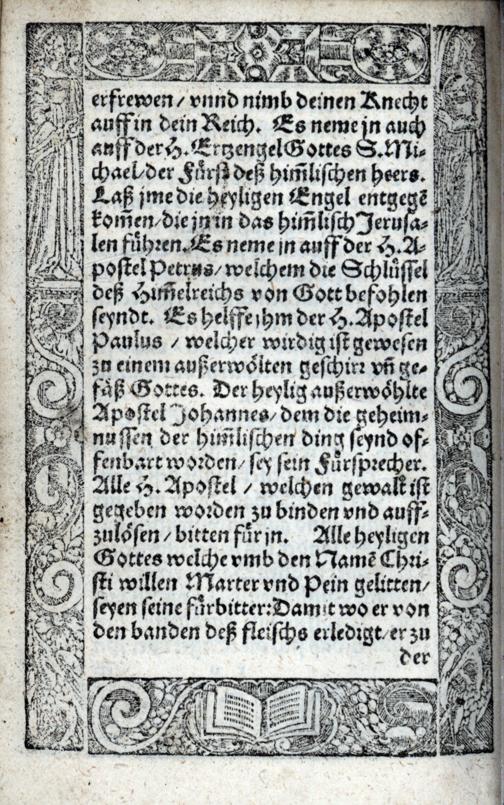 erfrewen / vnnd nimb deinen Knecht
auff in dein Reich. Es neme jn auch
auff der H. Ertzengel Gottes S. Mi-
chael / der Fürst deß him̃lischen heers.
Laß jme die heyligen Engel entgegẽ
kom̃en / die jn in das him̃lisch Jerusa-
len führen. Es neme jn auff der H. A-
postel Petrus / welchem die Schlüssel
deß Him̃elreichs von Gott befohlen
seyndt. Es helffe jhm der H. Apostel
Paulus / welcher wirdig ist gewesen
zu einem außerwölten geschirr vñ ge-
fäß Gottes. Der heylig außerwöhlte
Apostel Johannes / dem die geheim-
nussen der him̃lischen ding seynd of-
fenbart worden / sey sein Fürsprecher.
Alle H. Apostel / welchen gewalt ist
gegeben worden zu binden vnd auff-
zulösen / bitten für jn. Alle heyligen
Gottes welche vmb den Namẽ Chri-
sti willen Marter vnd Pein gelitten /
seyen seine fürbitter: Damit wo er von
den banden deß fleischs erledigt / er zu
der